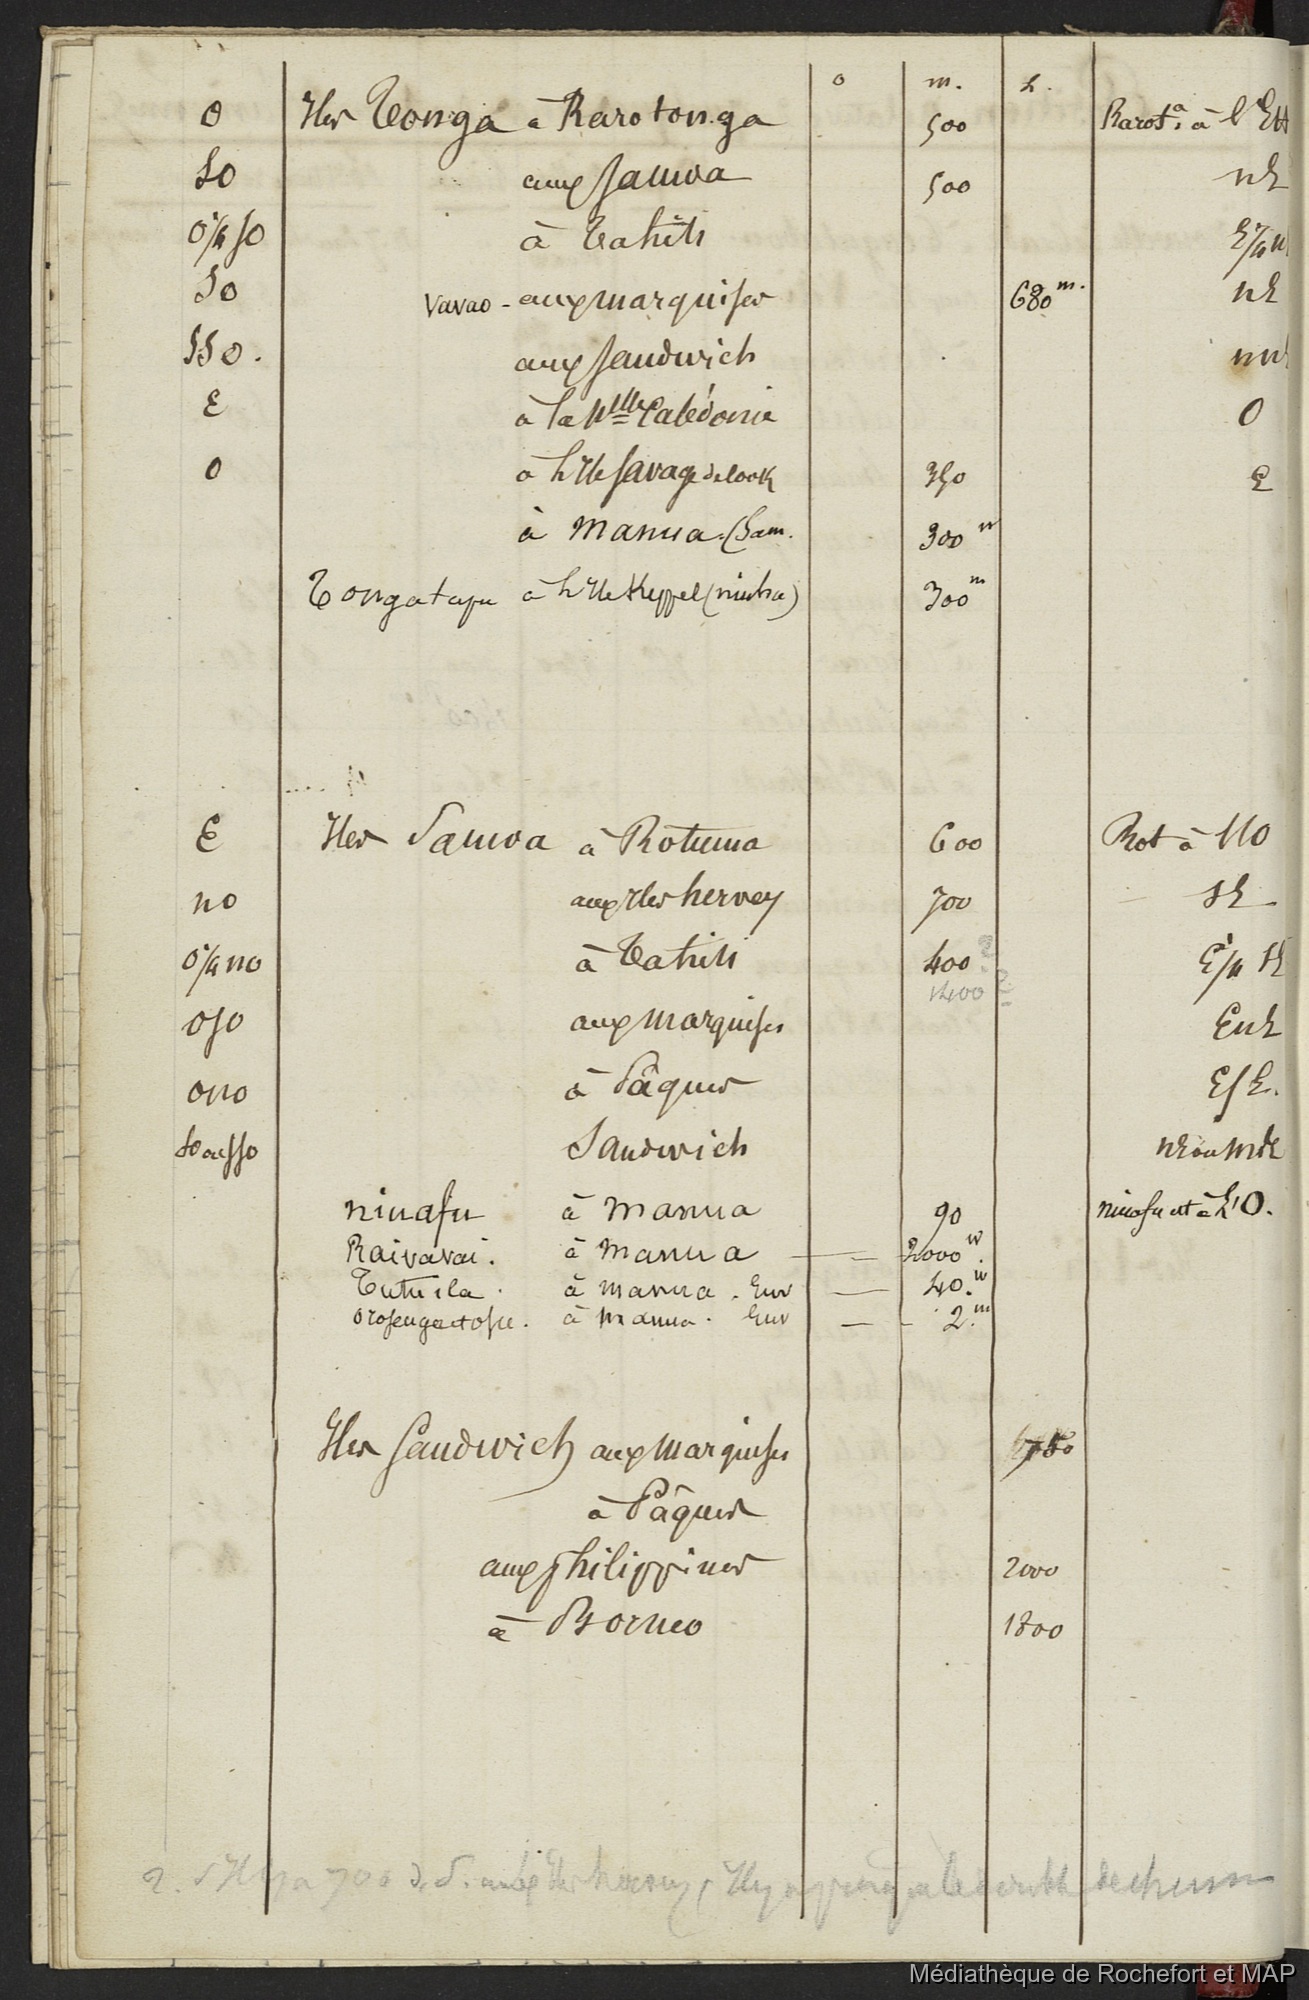 o m. L.
O Iles Tonga à Rarotonga 500 Rarot.a à l'Est
SO aux Samoa 500 NE
O 1/4 SO à Tahiti E 1/4 N
SO Vavao - aux Marquises 680 m. NE
SSO. aux Sandwich NN
E à la Nlle Calédonie O
O à l'Ile Savage de Cook 350 E
à Manua. (Sam. 300 m
Tongatapu à l'Ile Keppel (niuha) 300 m
E Iles Samoa à Rotuma 600 Rot à NO
NO aux Iles hervey 700 SE
O 1/4 NO à Tahiti 400
1400 E 1/4 SE
OSO aux Marquises ENE
ONO à Pâques ESE.
SO ou SSO Sandwich NE ou NNE
niuafu à Manua 90 niuafu est à l'O.
Raivavai. à Manua — — 2000 m.
Tutuila. à Manua. Env — 40. m
Orosenga et ofu. à Manua. Env — - 2. m
Iles Sandwich aux Marquises
à Pâques
aux philippines 2000
à Borneo 1800
Médiathèque de Rochefort et MAP